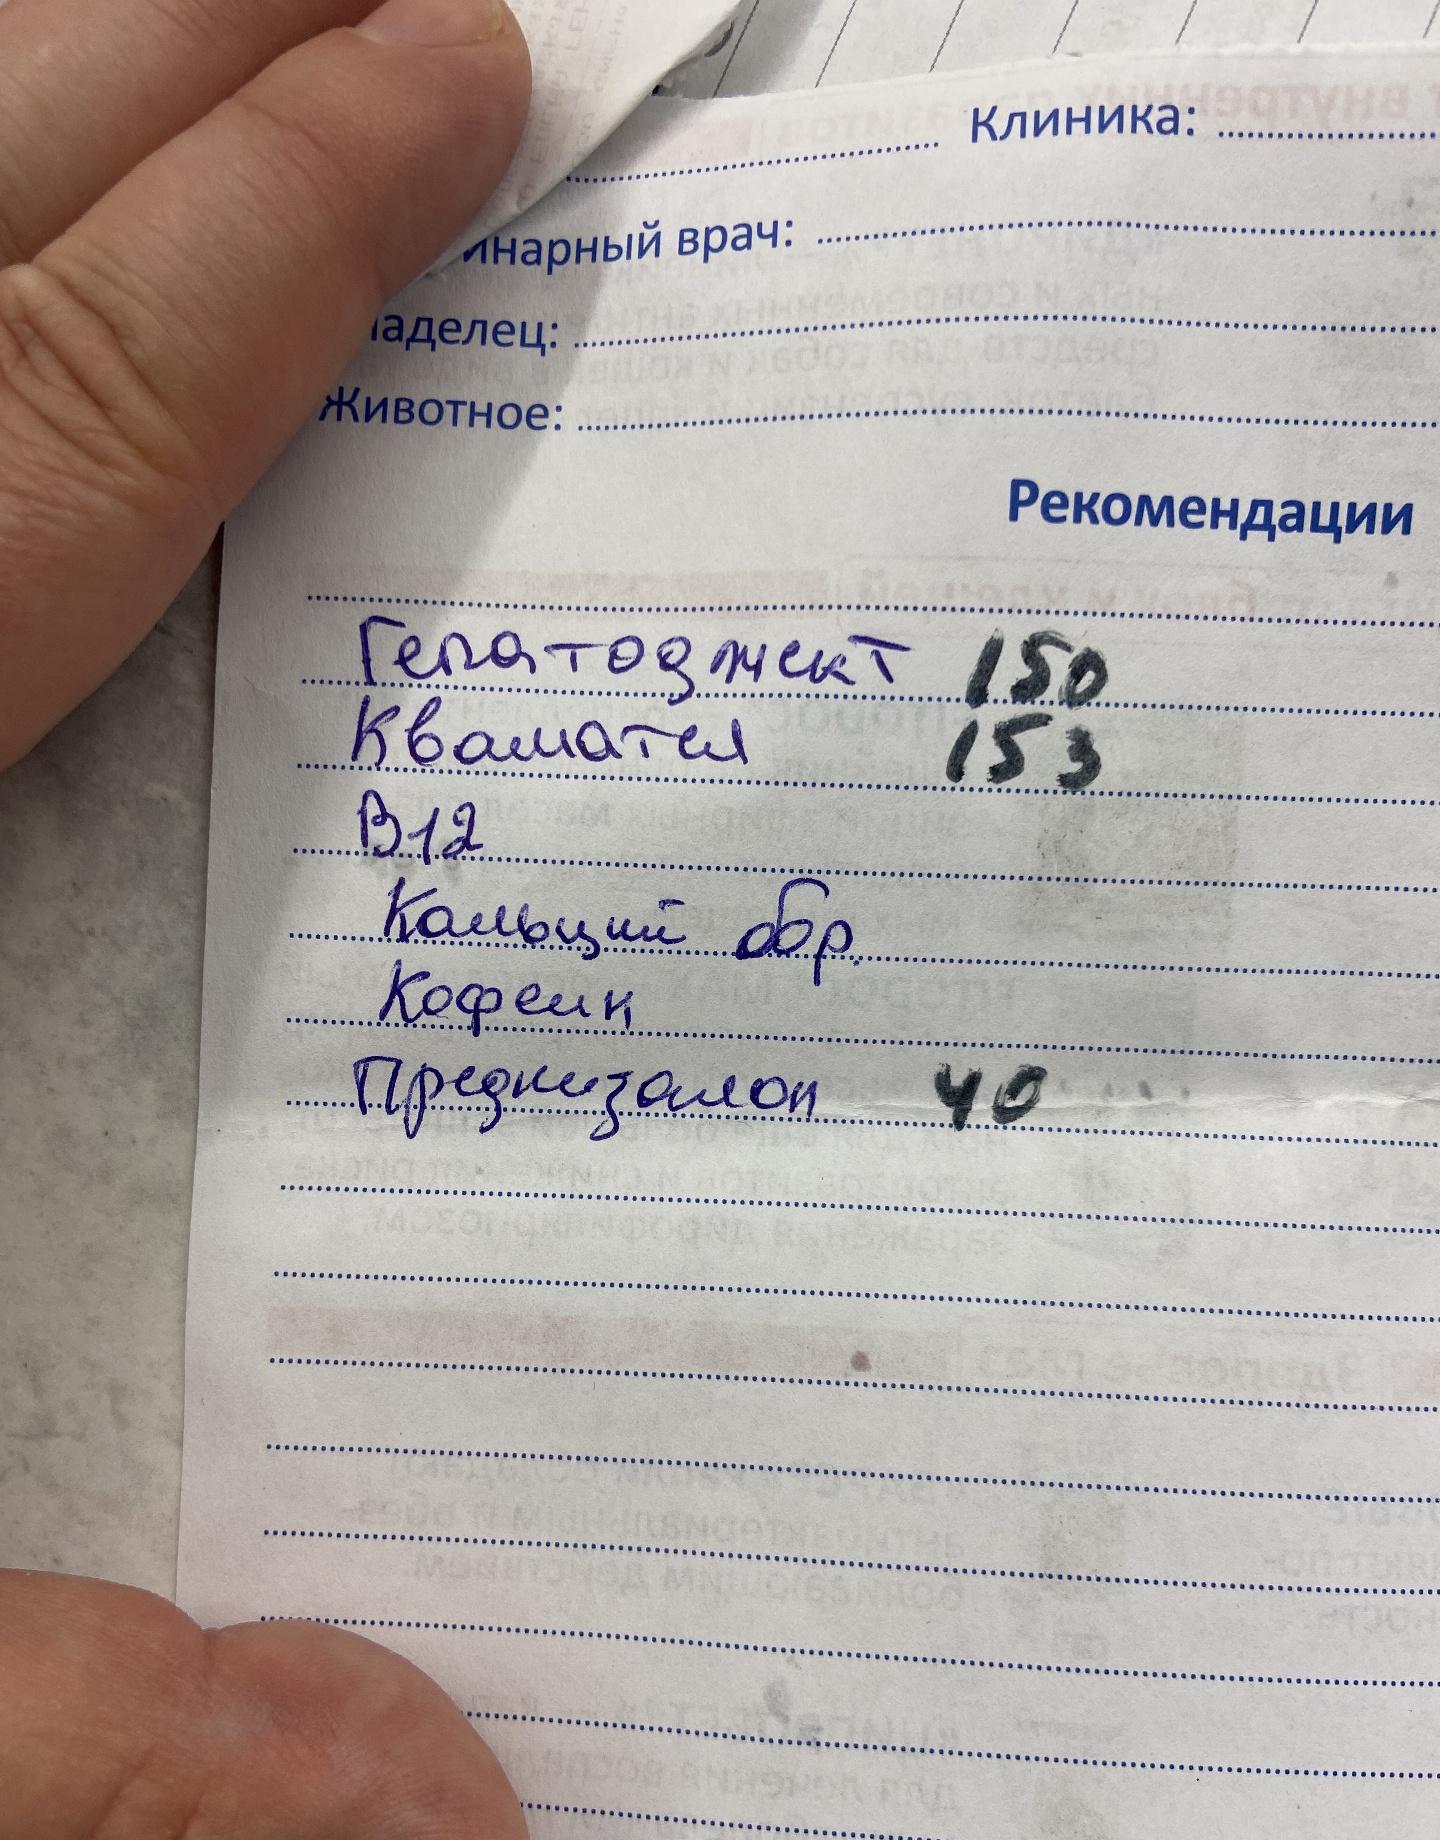 Клиника:
инарный врач:
аделец:
Животное:
Рекомендации
Гепатоджект 150
Квамател 153
В12
Кальций бор.
Кофеин
Преднизалон 40